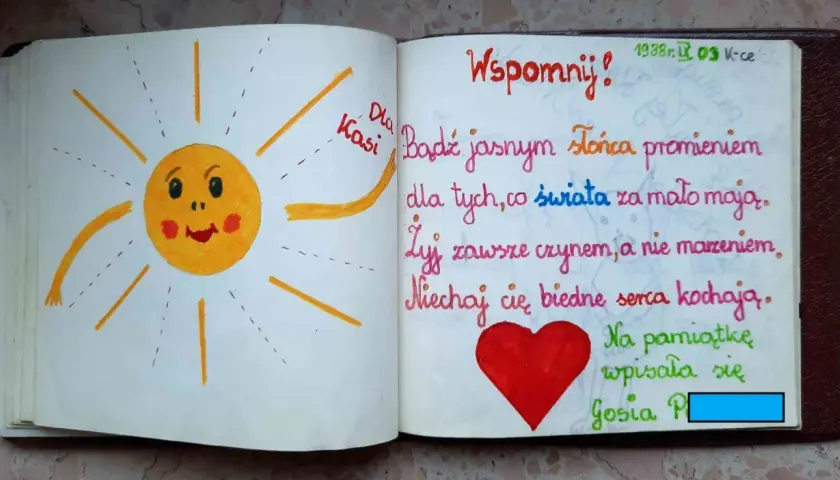 Dla
Kasi
1988r. IX 09 K-ce
Wspomnij!
Bądź jasnym słońca promieniem
dla tych, co świata za mało mają.
Żyj zawsze czynem, a nie marzeniem,
Niechaj cię biedne serca kochają.
Na pamiątkę
wpisała się
Gosia